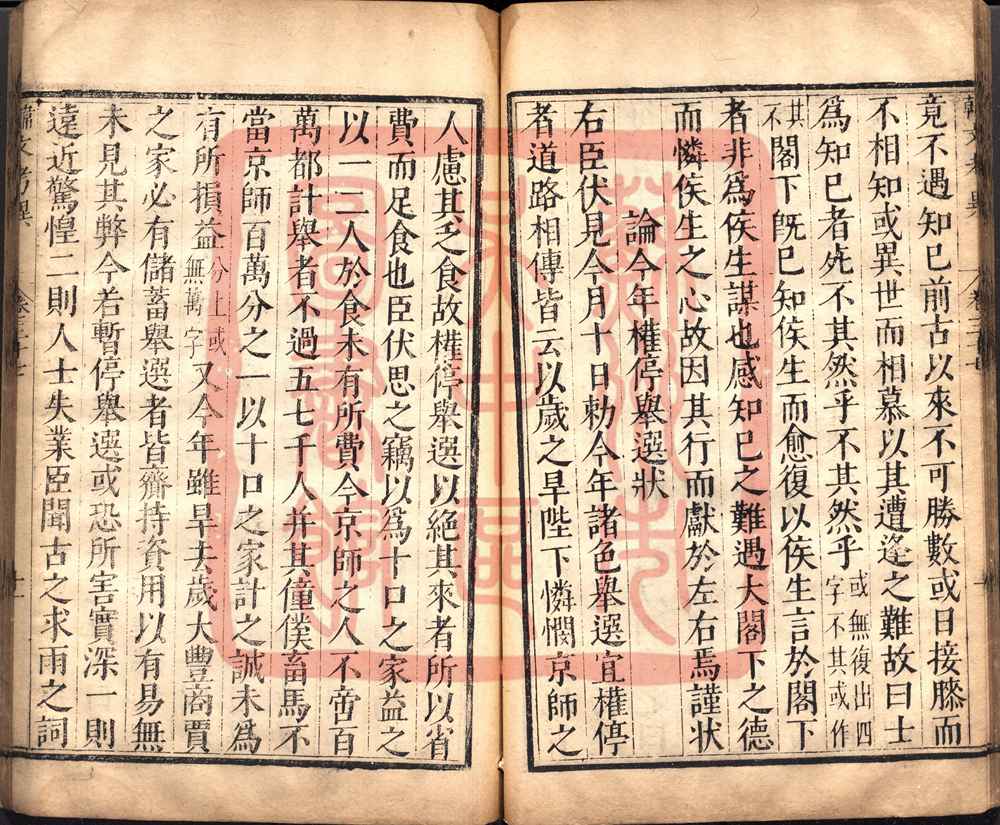 竟不遇知已前古以來不可勝數或日接膝而
不相知或異世而相慕以其遭逢之難故曰士
為知已者死不其然乎不其然乎或無復出四字不其或作
其不閤下旣已知侯生而愈復以侯生言於閤下
者非為侯生謀也感知已之難遇大閤下之德
而憐侯生之心故因其行而獻於左右焉謹狀
論今年權停舉選狀
右臣伏見今月十日勅今年諸色舉選宜權停
者道路相傳皆云以歲之旱陛下憐憫京師之
人慮其乏食故權停舉選以絕其來者所以省
費而足食也臣伏思之竊以為十口之家益之
以一二人於食未有所費今京師之人不啻百
萬都計舉者不過五七千人并其僮僕畜馬不
當京師百萬分之一以十口之家計之誠未為
有所損益分上或無萬字又今年雖旱去歲大豐商賈
之家必有儲蓄舉選者皆齎持資用以有易無
未見其弊今若暫停舉選或恐所害實深一則
遠近驚惶二則人士失業臣聞古之求雨之詞
韓文考異